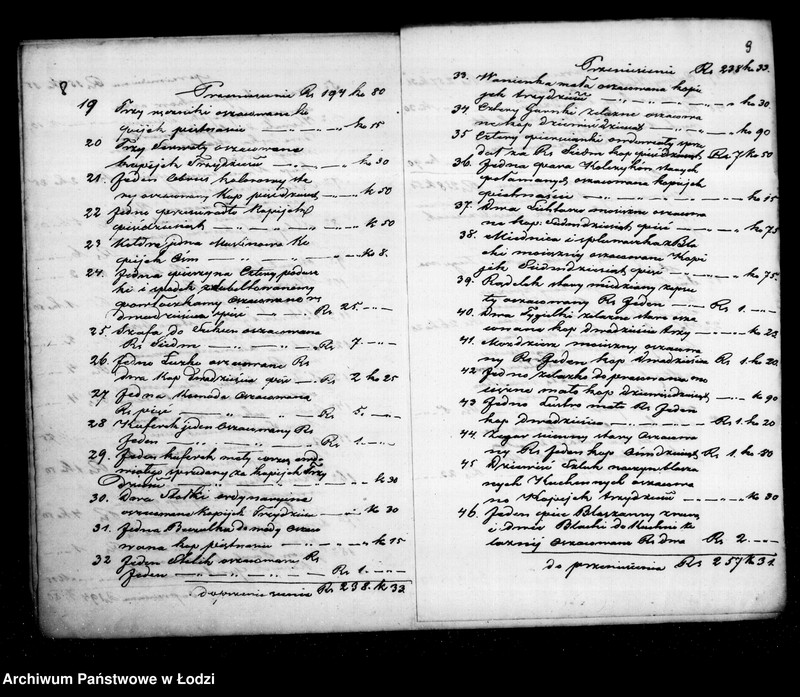 8
Przeniesienie Rs 194 ko 80
19 Trzy moździ oszacowane ko
piejek piętnaście ko 15
20 Trzy Serwety oszacowane
kopiejek Trzydzieści ko 30
21. Jeden Obrus kolorowy
oszacowany kop pięćdziesiąt k 50
22 Jedno prześcieradło kopiejek
pięćdziesiąt k 50
23 Kołdra jedna Muslinowa Ko
piejek Osm ko 8.
24. Jedna pierzyna Cztery podusz
ki i spodek
powłoczkami oszacowano
dwadzieścia pięć Rs 25.
25. Szafa do Sukien oszacowana
Rs Siedm Rs 7
26. Jedno Łóżko oszacowane Rs
dwa kop dwadzieścia pięć Rs 2 ko 25
27. Jedna Komoda oszacowana
Rs pięć Rs 5
28 Kuferek jeden oszacowany Rs
Jeden Rs 1
29. Jeden kuferek mały
sprzedany za kopiejek Trzy
dzieści ko 30
30. Dwa Stołki ordynaryjne
oszacowane kopiejek Trzydzieści ko 30
31. Jedna Beczułka do wody oszaco
wana kop piętnaście k 15
32 Jeden Stolik oszacowany Rs
Jeden Rs 1.
do przeniesienia Rs 238. k 33.
9
Przeniesienie Rs 238 k 33.
33. Wanienka mała oszacowana kopie
jek trzydzieści ko 30
34 Cztery Garnki żelazne oszacowa
ne kop dziewięćdziesiąt ko 90
35 Cztery
za Rs Siedm kop pięćdziesiąt Rs 7 ko 50
36. Jedna para Kolczyków starych
połamanych oszacowana kopiejek
piętnaście ko 15
37. Dwa Lichtarze mosiężne oszacowa
ne kop. Siedmdziesiąt pięć ko 75
38. Miednica i spluwaczka z Bla
chy mosiężnej oszacowane Kopie
jek Siedmdziesiąt pięć ko 75.
39. Rondelek stary miedziany
oszacowany Rs Jeden Rs 1.
40. Dwa żelazne stare osza
cowane kop dwadzieścia trzy k 23
41. Moździerz mosiężny oszacowa
ny Rs Jeden kop dwadzieścia Rs 1 ko 20
42 Jedno żelazko do prasowania mo
siężne małe kop dziewięćdziesiąt k 90
43 Jedno Lustro małe Rs Jeden
kop dwadzieścia Rs 1 ko 20
44. Zegar ścienny stary oszacowa
ny Rs Jeden kop Ośmdziesiąt Rs 1 ko 80
45 Dziewięć Sztuk naczyń
Kuchennych oszacowa
no Kopiejek trzydzieści ko 30
46. Jeden piec Blaszanny
i Dwie Blachy do Kuchni że
laznej oszacowane Rs Dwa Rs 2.
do przeniesienia Rs 257 k 31.
Archiwum Państwowe w Łodzi